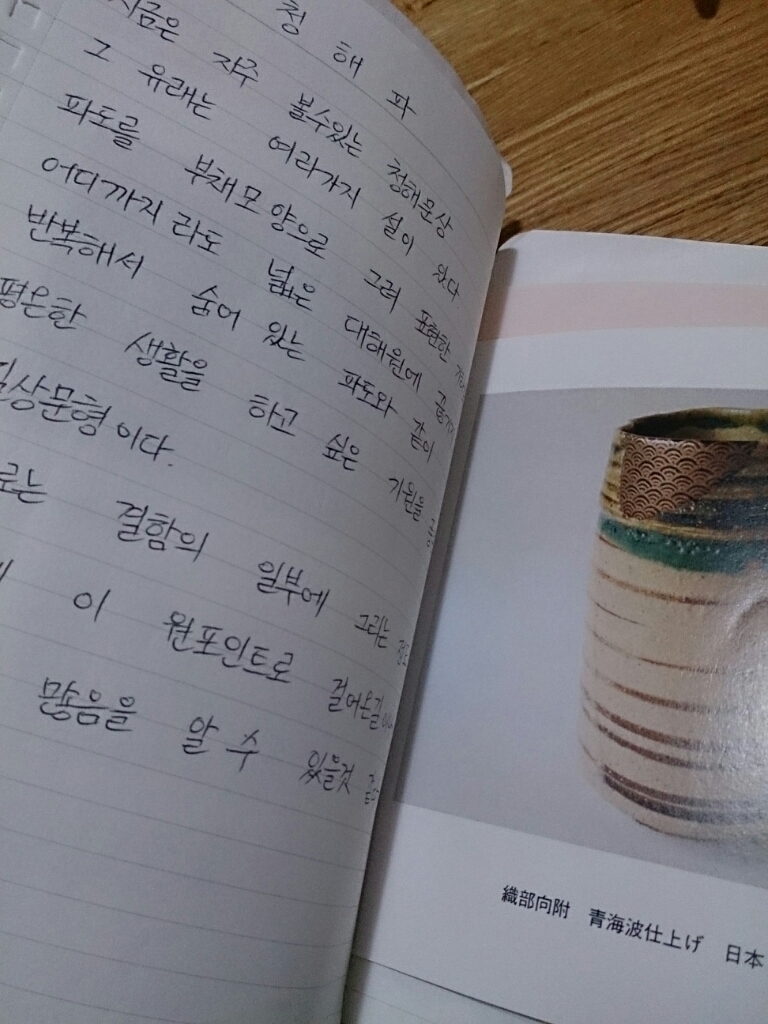 청 해 파
지금은 자주 볼수있는 청해문상
그 유래는 여러가지 설이 있다.
파도를 부채모양으로 그려 표현한
어디까지라도 넓은 대해원에
반복해서 숨어 있는 파도와 같이
평온한 생활을 하고 싶은 기원을
길상문형이다.
로는 결함의 일부에 그리는
이 원포인트로 걸어온길
많음을 알 수 있을것
織部向附 青海波仕上げ 日本